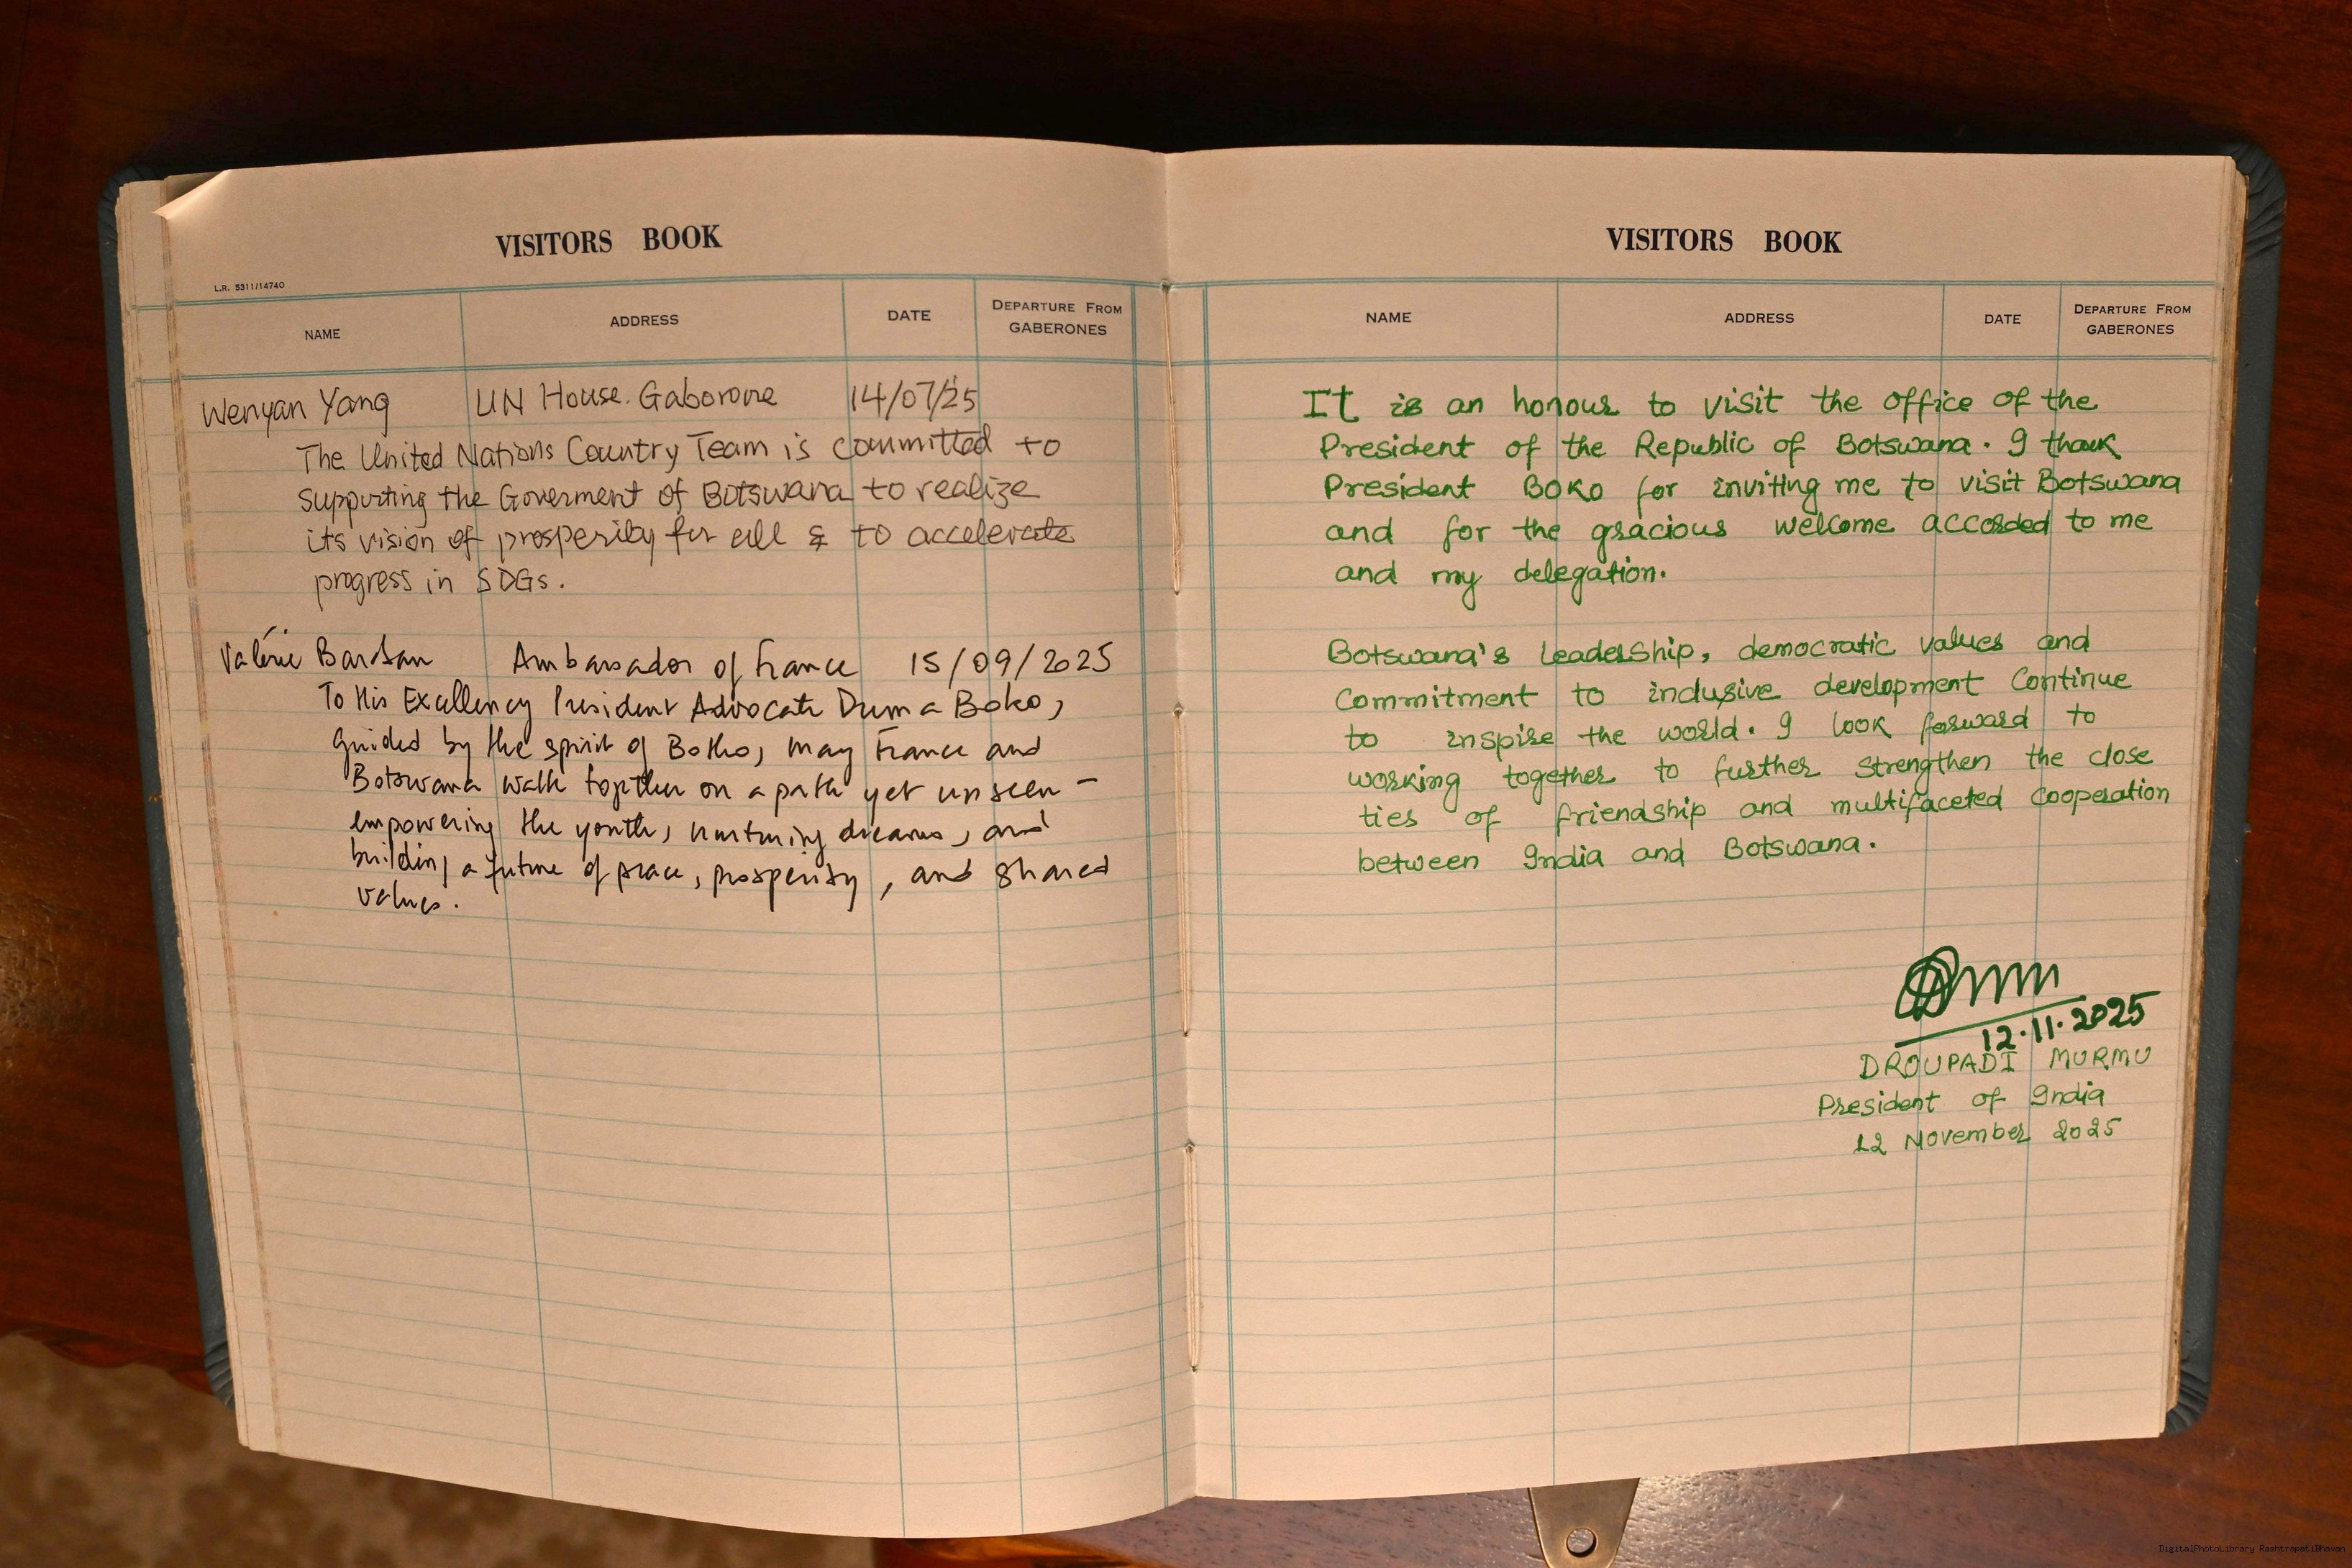 VISITORS BOOK
L.R. 5311/14740
NAME ADDRESS DATE DEPARTURE FROM GABERONES
Wenyan Yang UN House. Gaborone 14/07/25
The United Nations Country Team is committed to
supporting the Goverment of Botswana to realize
its vision of prosperity for all & to accelerate
progress in SDGs.
Valérie Ambassador of France 15/09/2025
To His Excellency President Advocate Duma Boko,
guided by the spirit of Botho, may France and
Botswana walk together on a path yet unseen -
empowering the youth, nurturing dreams, and
building a future of peace, prosperity, and shared
values.
VISITORS BOOK
NAME ADDRESS DATE DEPARTURE FROM GABERONES
It is an honour to visit the office of the
President of the Republic of Botswana. I thank
President BOKO for inviting me to visit Botswana
and for the gracious welcome accorded to me
and my delegation.
Botswana's leadership, democratic values and
commitment to inclusive development continue
to inspire the world. I look forward to
working together to further strengthen the close
ties of friendship and multifaceted cooperation
between India and Botswana.
12.11.2025
DROUPADI MURMU
President of India
12 November 2025
DigitalPhotoLibrary RashtrapatiBhavan